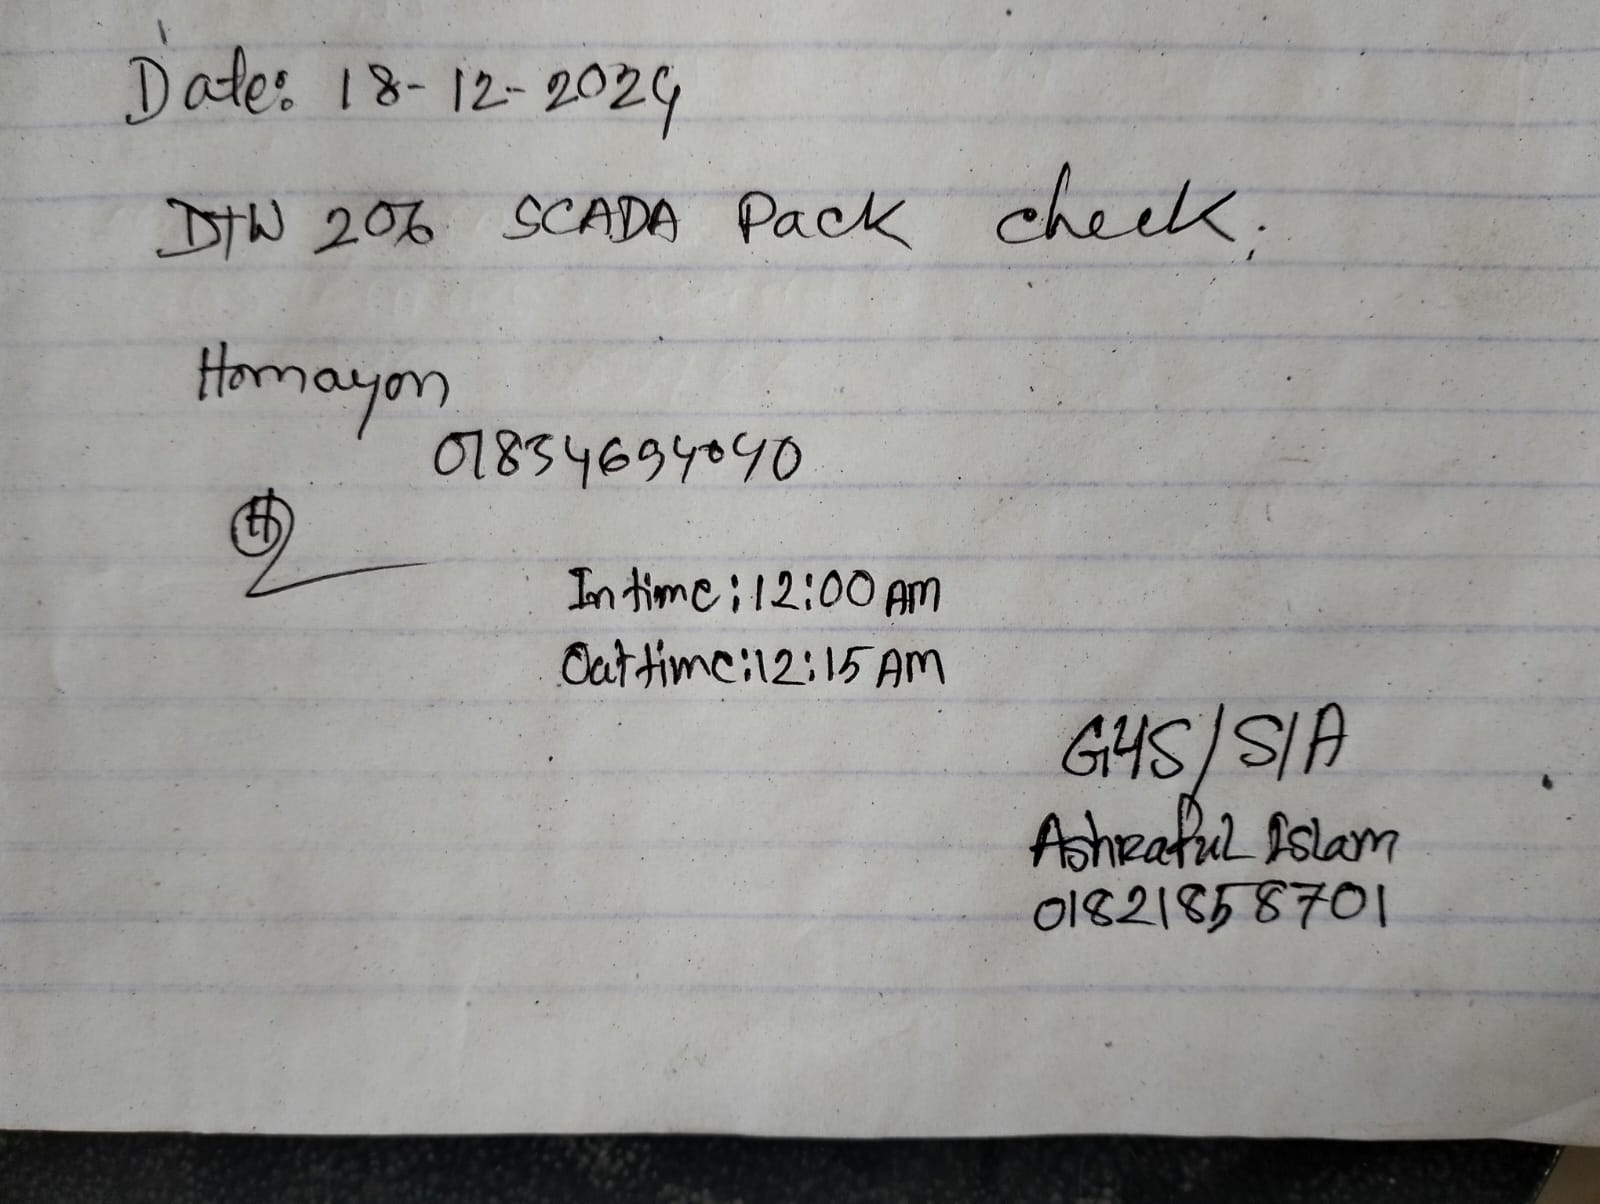 Date: 18-12-2024
DTW 206 SCADA Pack check;
Homayon
01834694040
In time: 12:00 AM
Oat time: 12:15 AM
G4S/S/A
Ashraful Islam
01821858701